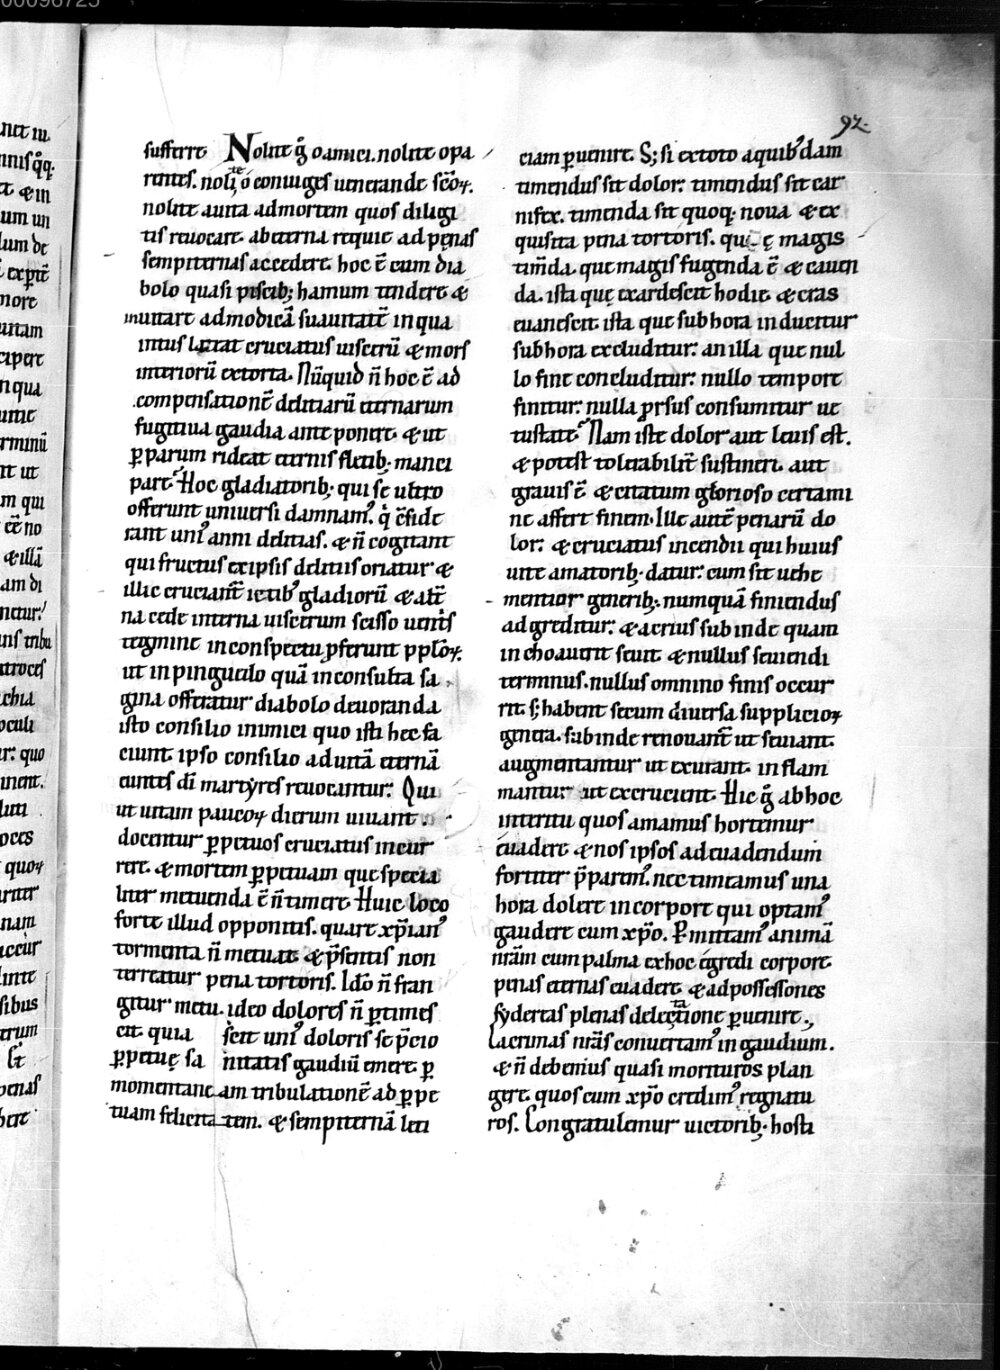 00098725
92.
sufferre. Nolite g̊ o amici. nolite o pa
rentes. noli`te´ o coniuges uenerande sc̄oꝝ.
nolite a uita ad mortem quos diligi
tis reuocare. ab eterna requie ad pęnas
sempiternas accedere. hoc ē eum dia
bolo quasi piscib; hamum tendere &
inuitare ad modicā suauitatē in qua
intus lateat cruciatus uiscerū & mors
interiorū extorta. Nūquid ñ hoc ē ad
compensationē delitiarū eternarum
fugitiua gaudia anteponere. & ut
ꝑ parum rideat eternis fletib; manci
pare. Hoc gladiatorib; qui se ultro
offerunt uniuersi damnamꝰ. q̇ cēside
rant uniꝰ anni delitias. & ñ cogitant
qui fructus ex ipsis delitiis oriatur &
illic crucianť ictibꝰ gladiorū & aliē
na cede interna uiscerum scisso uentris
tegmine in conspectu ꝓferunt ppl̄oꝝ.
ut in pingui edilo quā inconsulta sa
gina offeratur diabolo deuoranda
isto consilio inimici quo isti hec fa
ciunt. ipso consilio ad uitā eternā
euntes dī martyres reuocantur. Qui
ut uitam paucoꝝ dierum uiuant
docentur ꝑpetuos cruciatus incur
rere. & mortem ꝑpetuam que specia
liter metuenda ē ñ timere. Huic loco
forte illud opponitis. quare xp̄ianꝰ
tormenta ñ metuat & p̄sentis non
terreatur pena tortoris. Idō ñ fran
gitur metu. ideo dolores ñ ꝑtimes
cit quia scit uniꝰ doloris se p̄cio
ꝑpetuę sa nitatis gaudiū emere. ꝑ
momentane am tribulationē ad ꝑpe
tuam felicita tem. & sempiternā leti
ciam ꝑuenire. S; si ex toto a quibꝰdam
timendus sit dolor. timendus sit car
nifex. timenda sit quoq; noua & ex
quisita pena tortoris. que ę magis
tim̄da. que magis fugenda ē & cauen
da. ista quę exardescit hodie & cras
euanescit. ista que sub hora inducitur
sub hora excluditur. an illa que nul
lo fine concluditur. nullo tempore
finitur. nulla ꝓrsus consumitur ue
tustate. Nam iste dolor aut leuis est.
& potest tolerabilit̄ sustineri. aut
grauis ē & citatum glorioso certami
ne affert finem. Ille autē penarū do
lor. & cruciatus incendii qui huius
uite amatorib; datur. cum sit uehe
mentior generib;. numquā finiendus
adgreditur. & acrius subinde quam
inchoauerit seuit & nullus seuiendi
terminus. nullus omnino finis occur
rit. s; habent secum diuersa supplicioꝝ
genera. subinde renouanť ut seuiant.
augmentantur ut exurant. inflam
mantur ut excrucient. Hic g̊ ab hoc
interitu quos amamus hortemur
euadere & nos ipsos ad euadendum
fortiter p̄paremꝰ. nec timeamus una
hora dolere in corpore qui optamꝰ
gaudere cum xp̄o. ꝑmittamꝰ animā
nr̄am cum palma ex hoc egredi corpore.
penas eternas euadere. & ad possessiones
sydereas plenas delec`ta´tione ꝑuenire.
Lacrimas nr̄as conuertamꝰ in gaudium.
& ñ debemus quasi morituros plan
gere. quos cum xp̄o credimꝰ regnatu
ros. Congratulemur uictorib; hosti